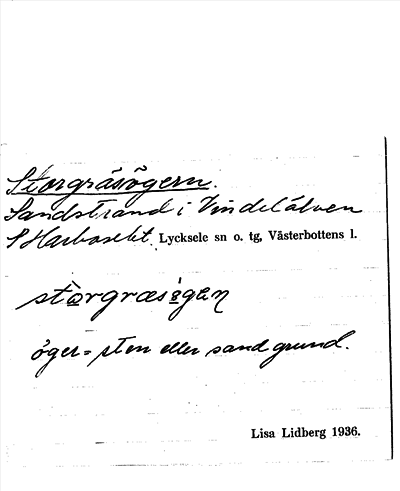 Storgräsögern.
Sandstrand i Vindelälven
S Harbäcket. Lycksele sn o. tg, Västerbottens l.
stòrgræsögαn
öger = sten eller sandgrund.
Lisa Lidberg 1936.